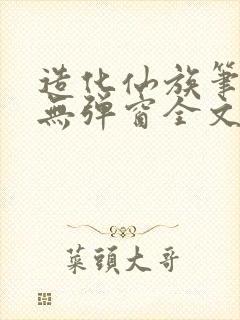 造化仙族筆
無彈窗全文
菜頭大哥